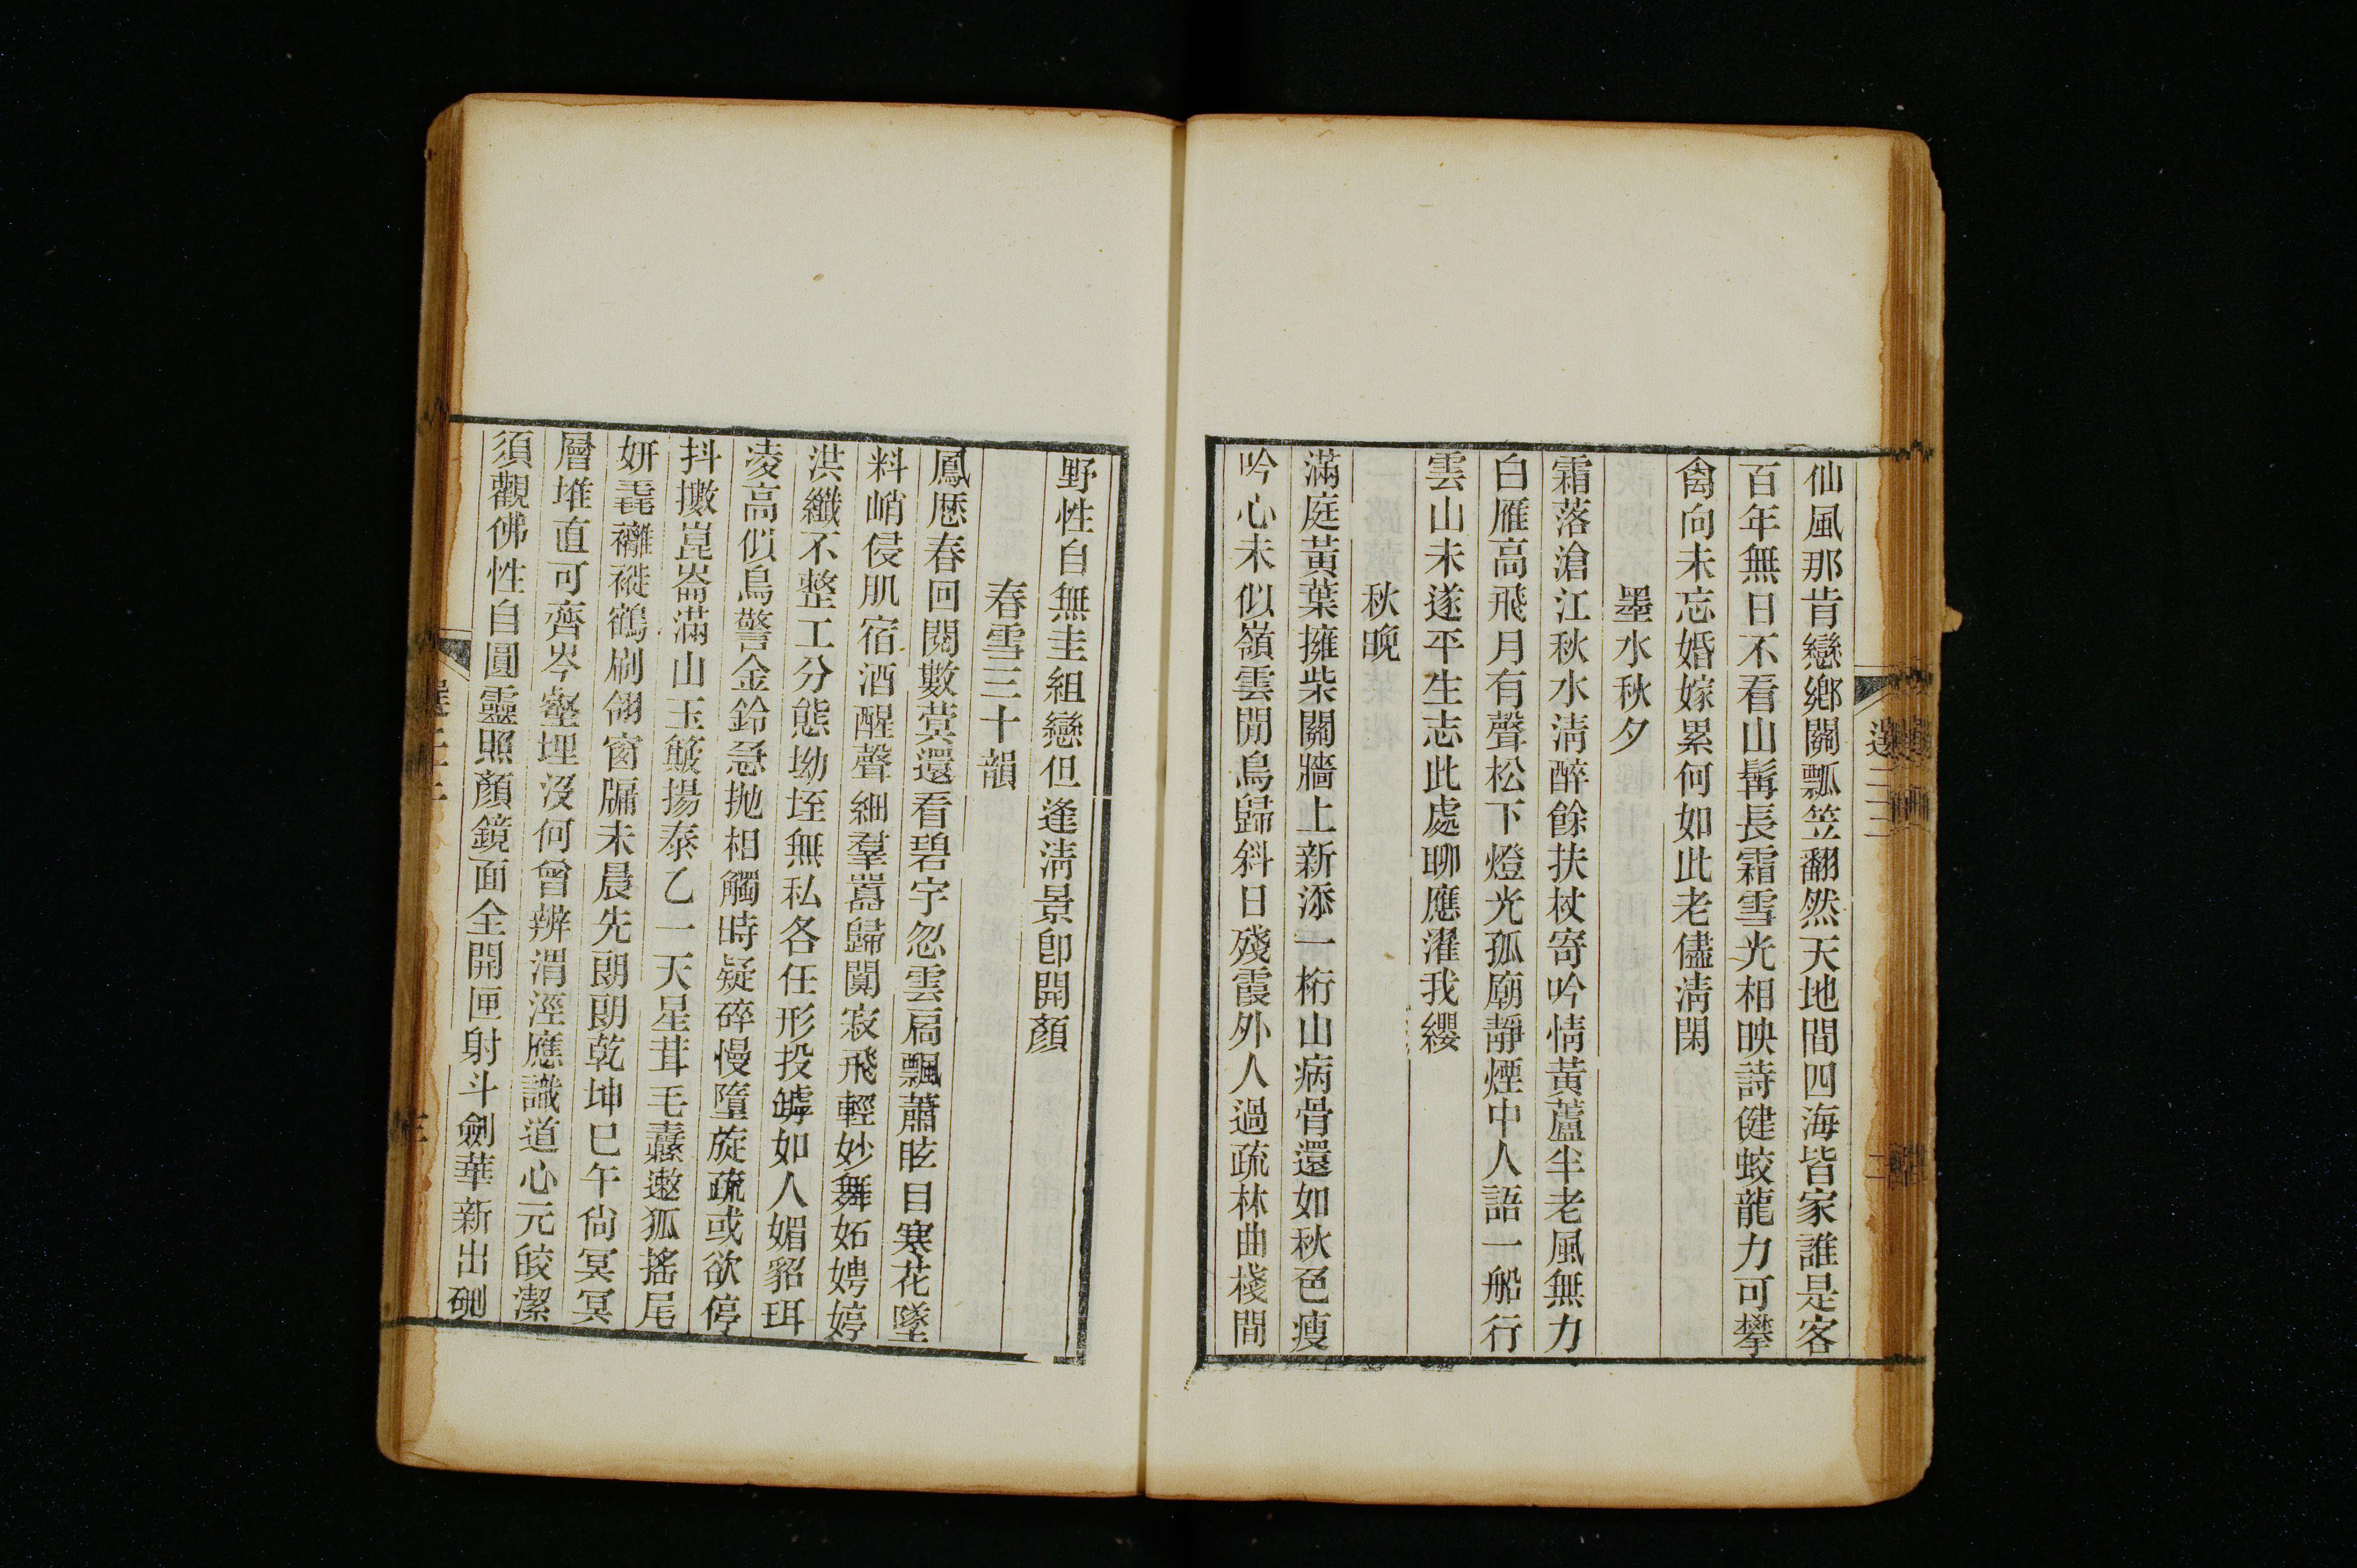 仙風那肯戀鄉關瓢笠翻然天地間四海皆家誰是客
百年無日不看山髯長霜雪光相映詩健蛟龍力可攀
禽向未忘婚嫁累何如此老儘淸閑
墨水秋夕
霜落滄江秋水淸醉餘扶杖寄吟情黃蘆半老風無力
白雁高飛月有聲松下燈光孤廟靜煙中人語一船行
雲山未遂平生志此處聊應濯我纓
秋晚
滿庭黃葉擁柴關牆上新添一桁山病骨還如秋色瘦
吟心未似嶺雲閒鳥歸斜日殘霞外人過疏林曲棧間
野性自無圭組戀但逢淸景卽開顏
春雪三十韻
鳳厯春回閱數蓂還看碧宇忽雲扃飄蕭眩目寒花墜
料峭侵肌宿酒醒聲細羣囂歸闃寂飛輕妙舞妬娉婷
洪纖不整工分態坳垤無私各任形投罅如人媚貂珥
淩高似鳥警金鈴急拋相觸時疑碎慢墮旋疏或欲停
抖擻崑崙滿山玉簸揚泰乙一天星茸毛纛遬狐搖尾
妍毳褵褷鶴刷翎窗牖未晨先朗朗乾坤巳午尙冥冥
層堆直可齊岑壑埋沒何曾辨渭涇應識道心元皎潔
須觀佛性自圓靈照顏鏡面全開匣射斗劍華新出硎